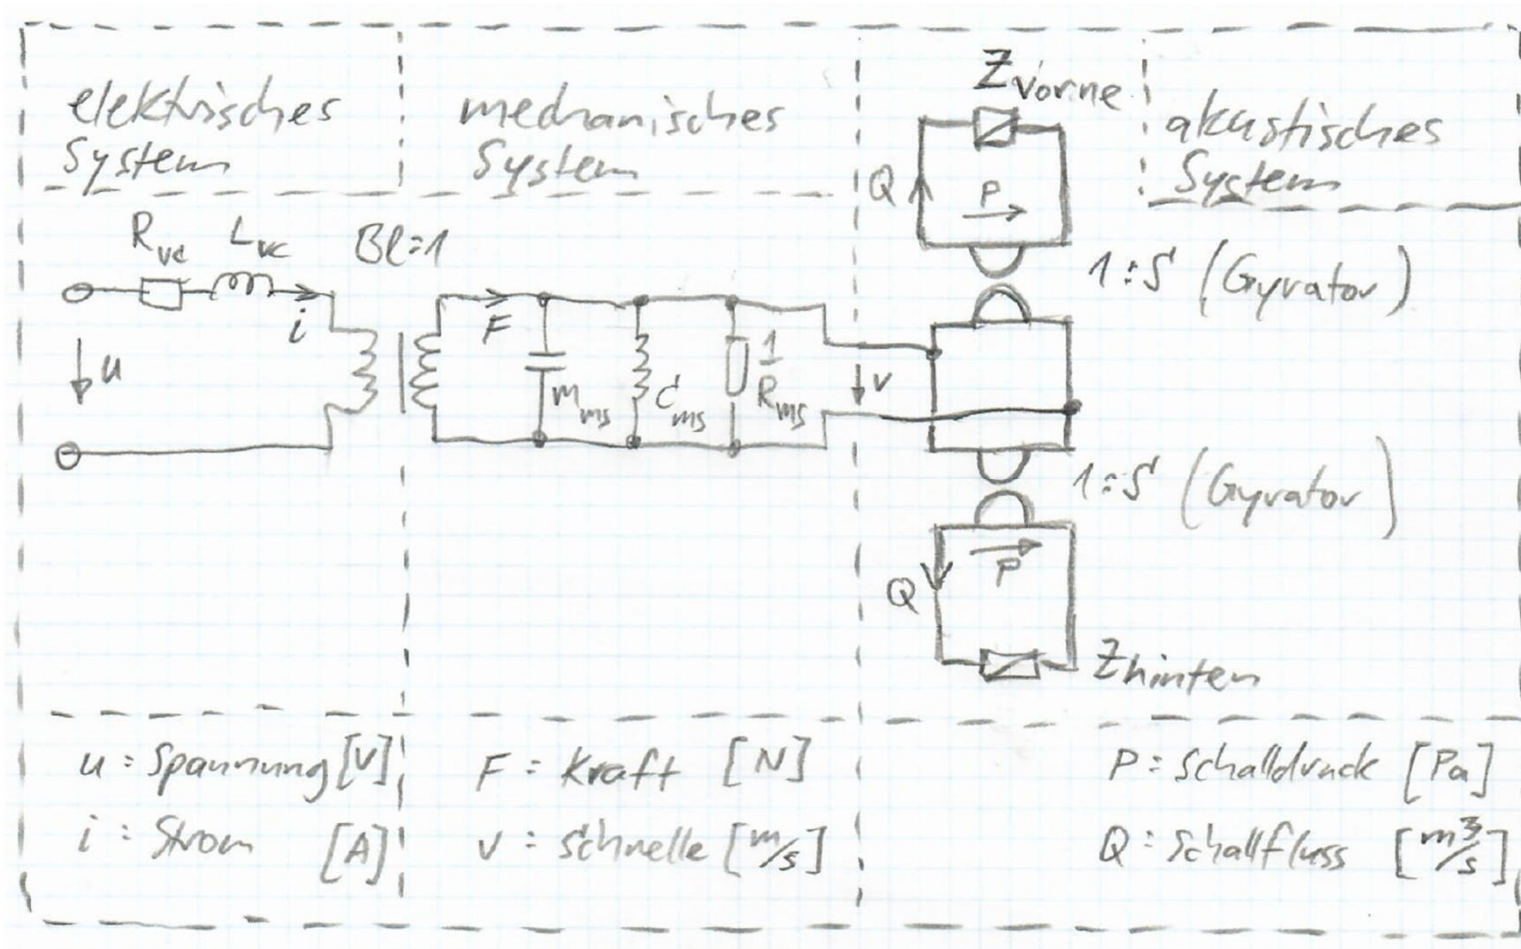 elektrisches
System
mechanisches
System
Zvorne
akustisches
System
Rvc Lvc Bl:1
i
u
F
mms
Cms
1
Rms
v
Q
P
1:S (Gyrator)
1:S (Gyrator)
P
Q
Zhinten
u : Spannung [V]
i : Strom [A]
F : Kraft [N]
v : Schnelle [m/s]
P : Schalldruck [Pa]
Q : Schallfluss [m³/s]